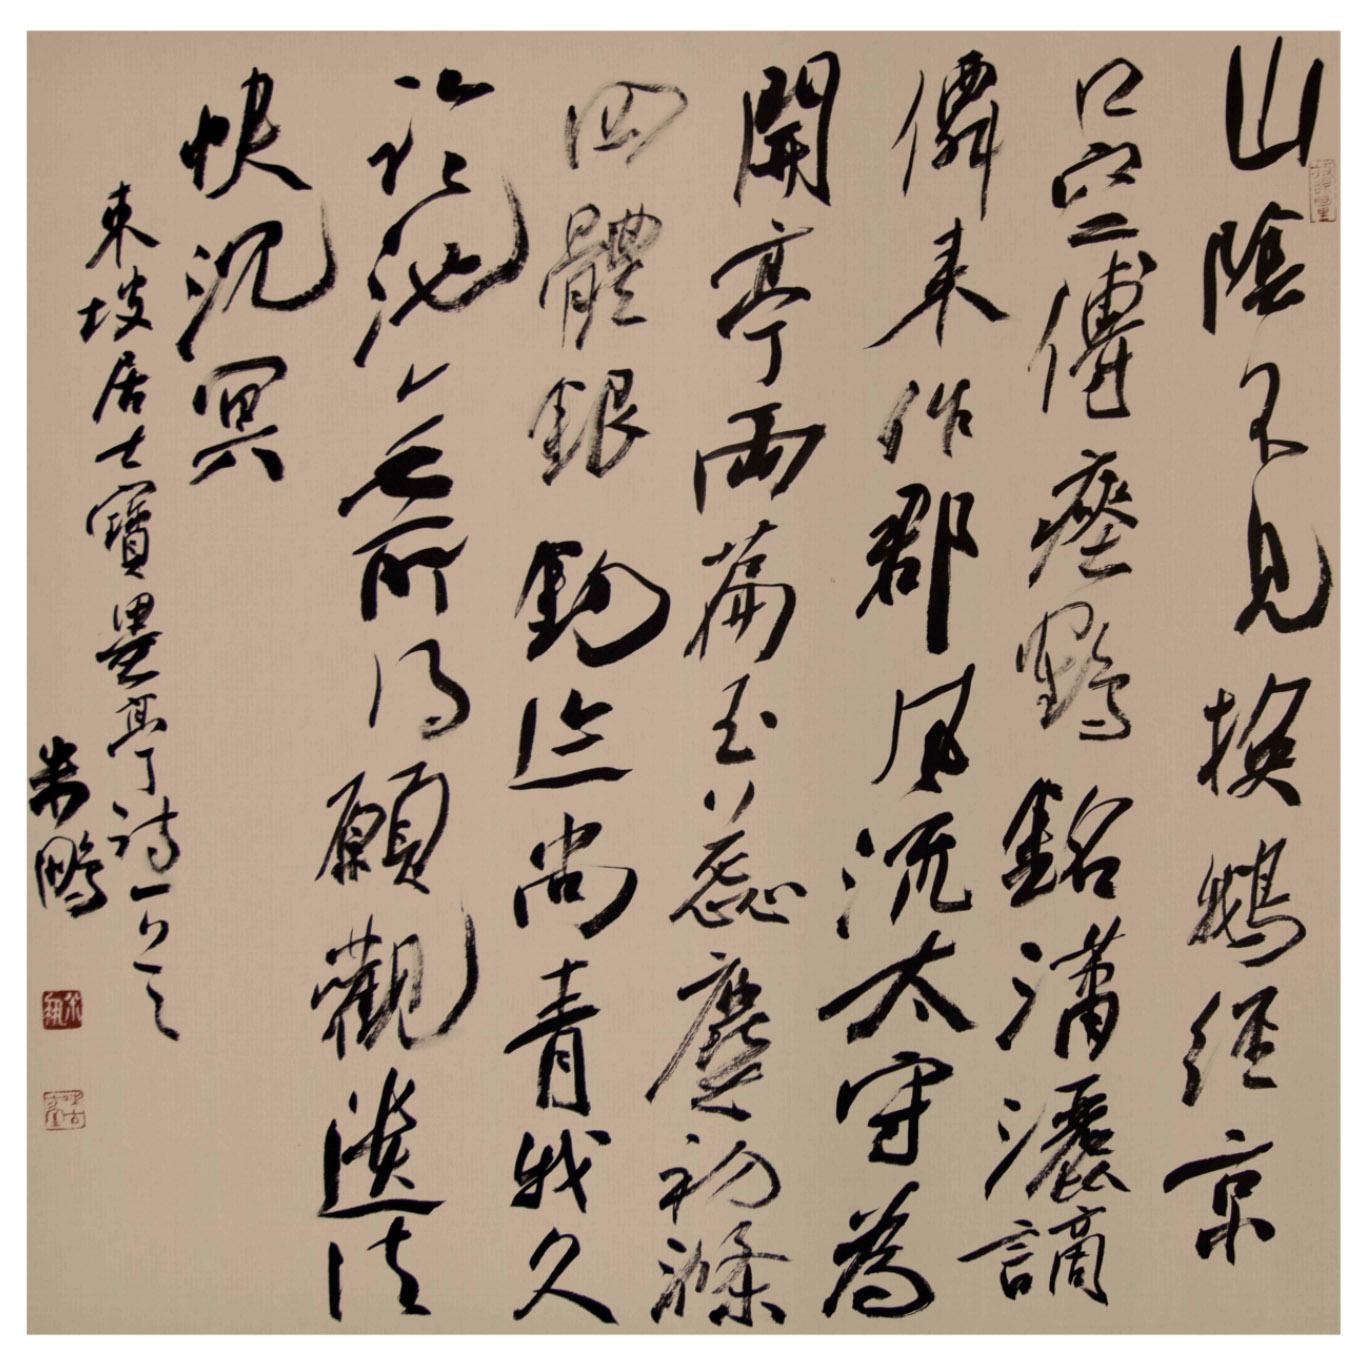 山陰不見換鵝經京
口空傳瘞鶴銘瀟灑謫
僊來作郡風流太守為
開亭兩篇玉蕊塵初滌
四體銀鉤迹尚青我久
臨池無所得願觀遺法
快沉冥
東坡居士寶墨亭詩一首
朱鵬